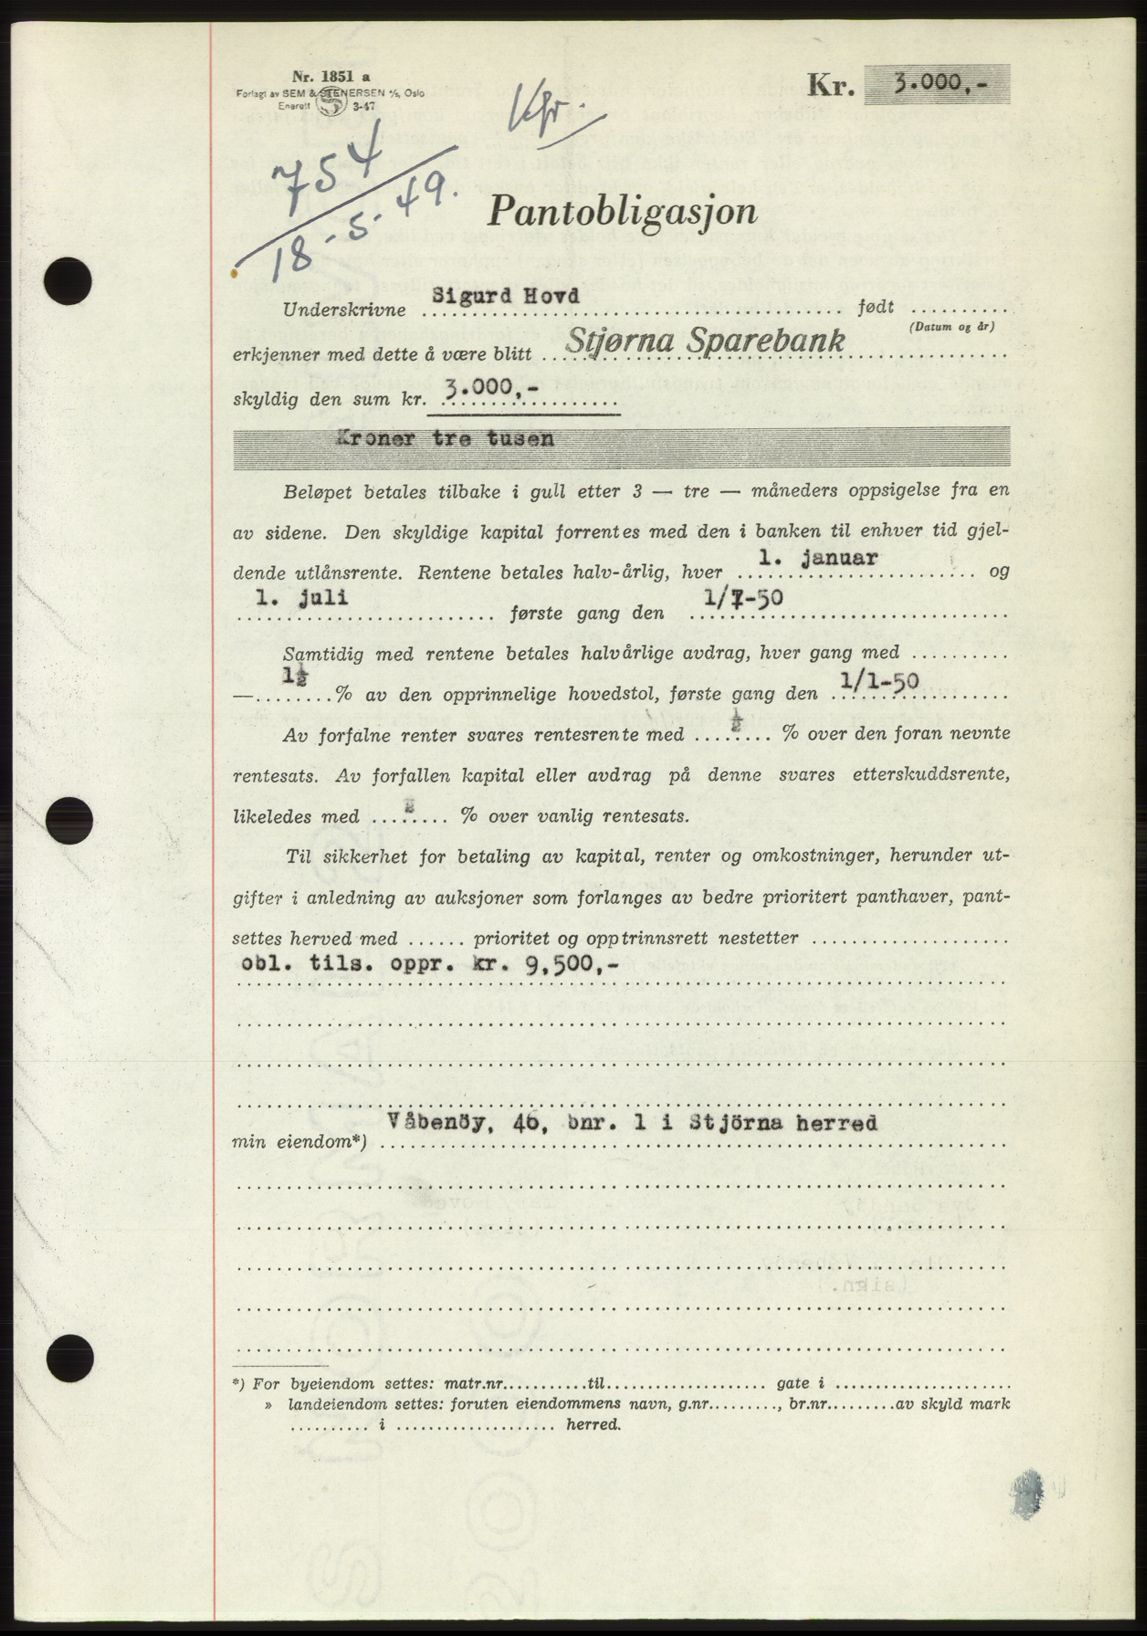 Nr. 1851 a
Forlagt av SEM & STENERSEN A/S, Oslo
Enerett 3-47
Kr. 3.000,-
754
18-5-49.
Pantobligasjon
Underskrivne Sigurd Hovd født
(Datum og år)
erkjenner med dette å være blitt Stjørna Sparebank
skyldig den sum kr. 3.000,-
Kroner tre tusen
Beløpet betales tilbake i gull etter 3 — tre — måneders oppsigelse fra en
av sidene. Den skyldige kapital forrentes med den i banken til enhver tid gjel-
dende utlånsrente. Rentene betales halv-årlig, hver 1. januar og
1. juli første gang den 1/7-50
Samtidig med rentene betales halvårlige avdrag, hver gang med
— 1½ % av den opprinnelige hovedstol, første gang den 1/1-50
Av forfalne renter svares rentesrente med ½ % over den foran nevnte
rentesats. Av forfallen kapital eller avdrag på denne svares etterskuddsrente,
likeledes med % over vanlig rentesats.
Til sikkerhet for betaling av kapital, renter og omkostninger, herunder ut-
gifter i anledning av auksjoner som forlanges av bedre prioritert panthaver, pant-
settes herved med ...... prioritet og opptrinnsrett nestetter
obl. tils. oppr. kr. 9,500,-
Våbenöy, 46, bnr. 1 i Stjörna herred
min eiendom*)
*) For byeiendom settes: matr.nr. til gate i
» landeiendom settes: foruten eiendommens navn, g.nr., br.nr. av skyld mark
i herred.